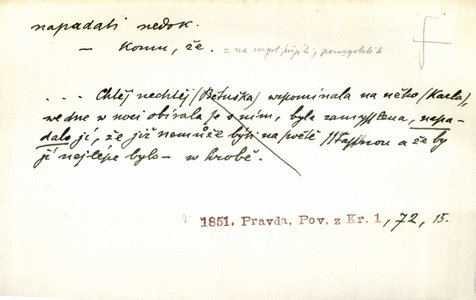 napadati nedok.
— Komu, že. z na mysl přijíti, pomysliti
. . . Chtěj nechtěj /Betuška/ wspomínala na něho /Karla/,
we dne w noci obírala se s ním, byla zamyšlena, nepa-
dalo jí, že již nemůže býti na světě šťastnou a že by
jí nejlépe bylo – w hrobě.
1851. Pravda, Pov. z Kr. 1, 72, 15.